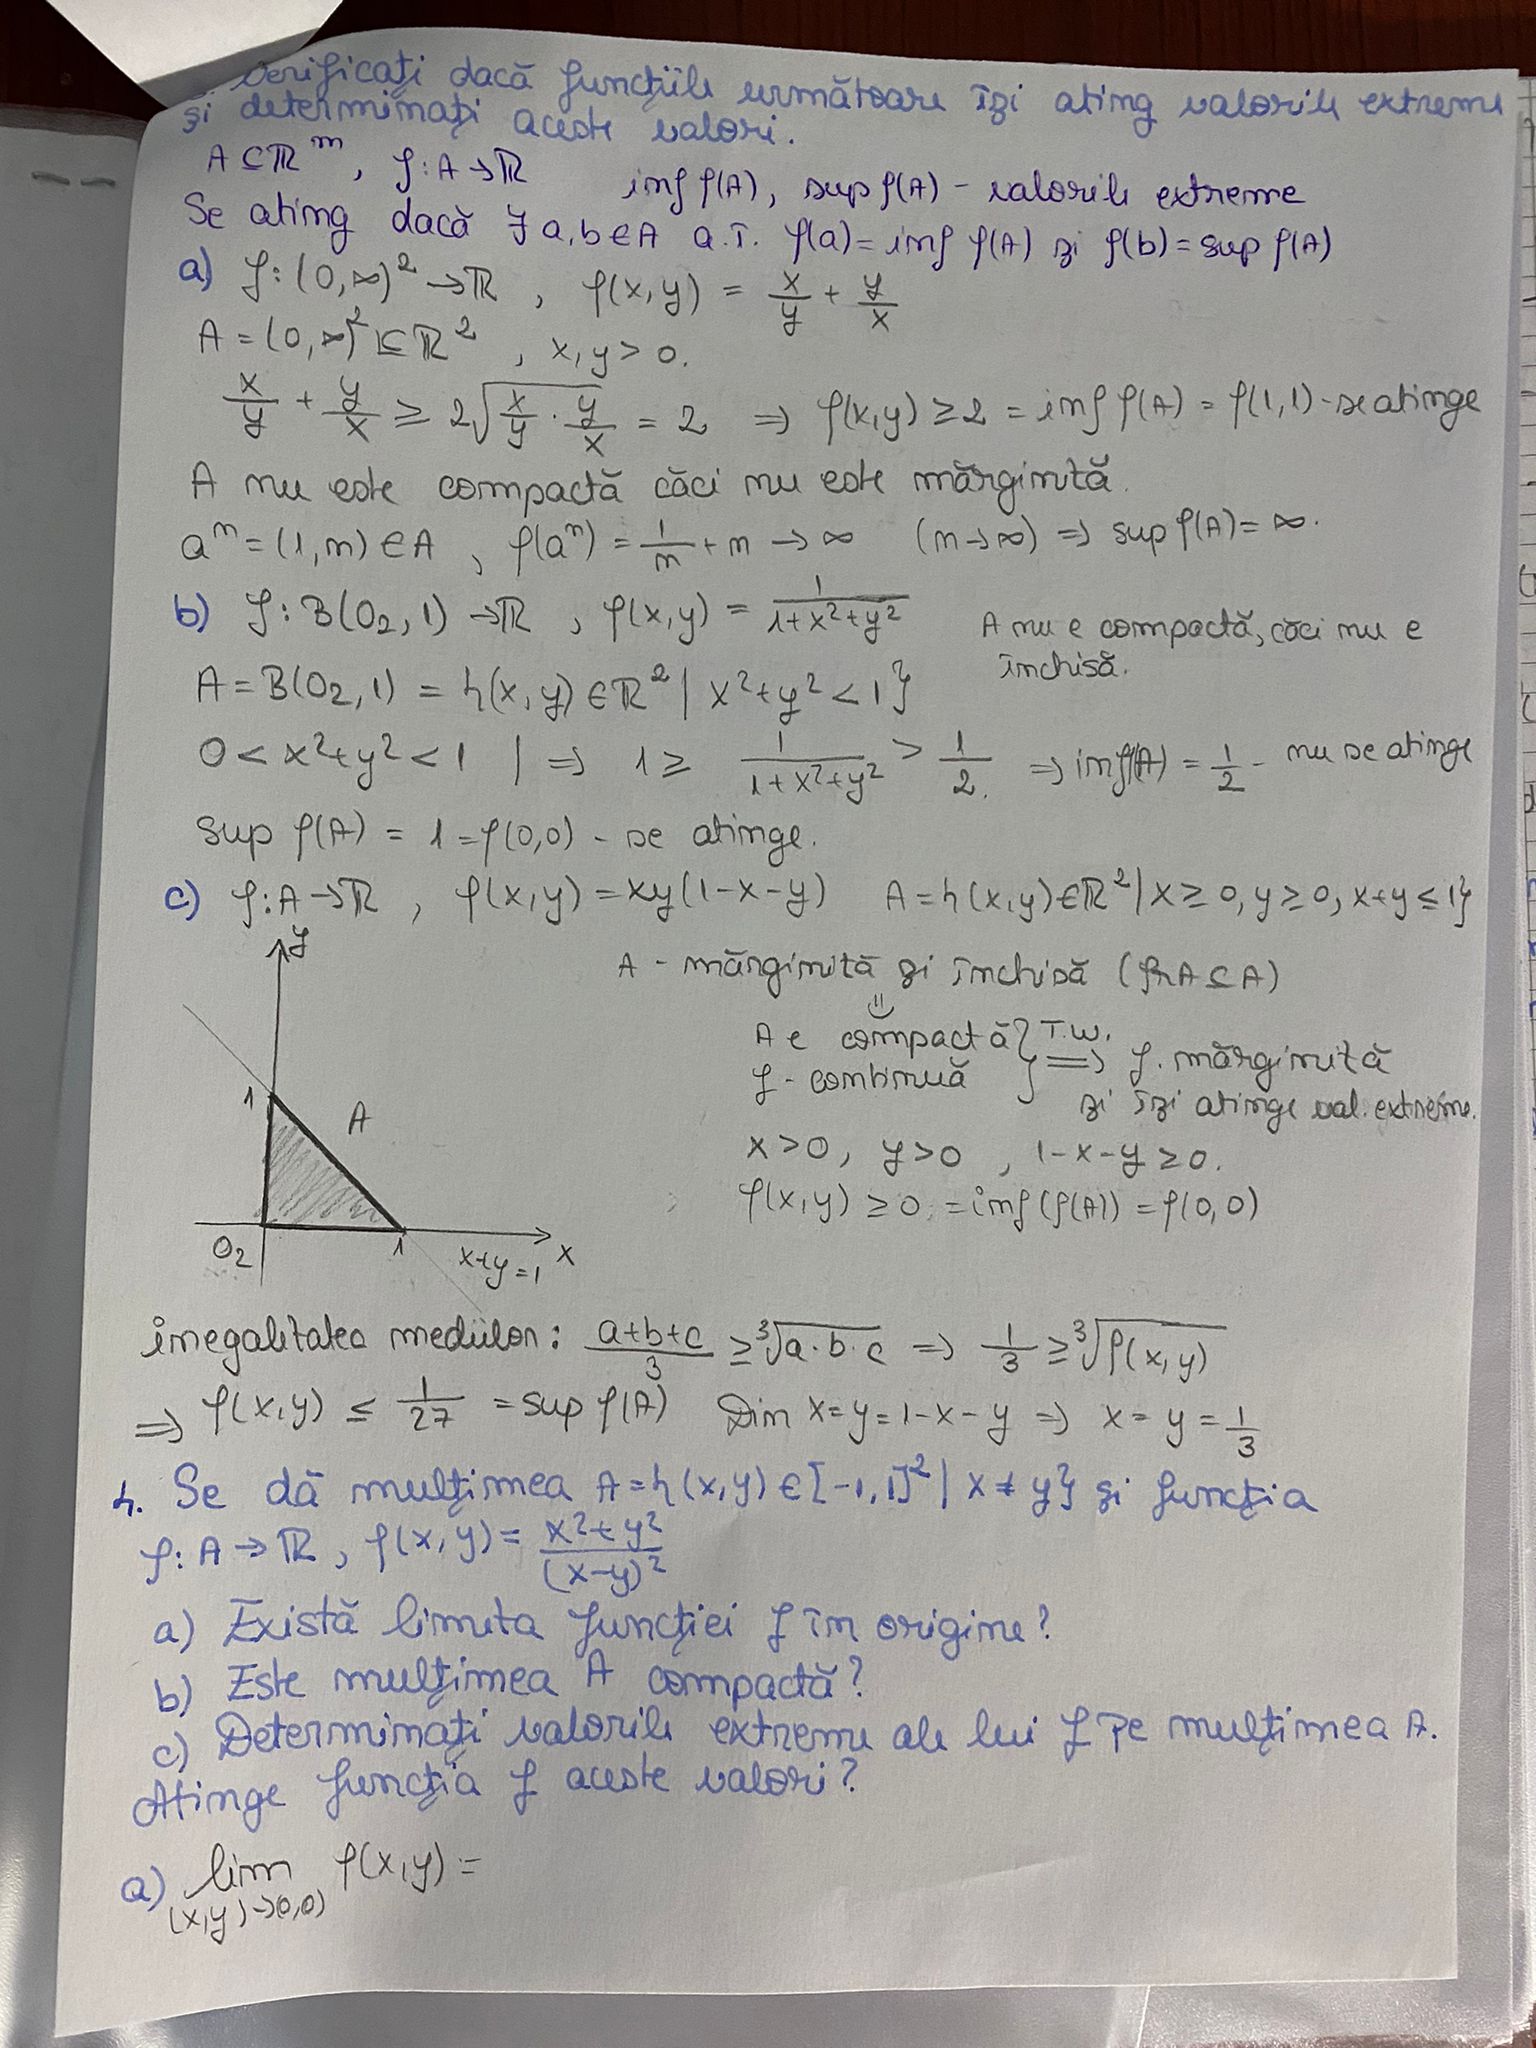 Verificați dacă funcțiile următoare își ating valorile extreme
și determinați aceste valori.
A ⊆ ℝ^m, f: A → ℝ inf f(A), sup f(A) - valorile extreme
Se ating dacă ∃ a,b ∈ A a.î. f(a) = inf f(A) și f(b) = sup f(A)
a) f: (0,∞)² → ℝ, f(x,y) = x/y + y/x
A = (0,∞)² ⊆ ℝ², x,y > 0.
x/y + y/x ≥ 2√(x/y · y/x) = 2 ⇒ f(x,y) ≥ 2 = inf f(A) = f(1,1) - se atinge
A nu este compactă căci nu este mărginită.
a^n = (1,n) ∈ A, f(a^n) = 1/n + n → ∞ (n→∞) ⇒ sup f(A) = ∞.
b) f: B(O₂,1) → ℝ, f(x,y) = 1/(1+x²+y²)
A nu e compactă, căci nu e
închisă.
A = B(O₂,1) = {(x,y) ∈ ℝ² | x²+y² < 1}
0 < x²+y² < 1 | ⇒ 1 ≥ 1/(1+x²+y²) > 1/2. ⇒ inf f(A) = 1/2 - nu se atinge
sup f(A) = 1 = f(0,0) - se atinge.
c) f: A → ℝ, f(x,y) = xy(1-x-y) A = {(x,y) ∈ ℝ² | x ≥ 0, y ≥ 0, x+y ≤ 1}
y
1
A
O₂
1
x+y=1
x
A - mărginită și închisă (frA ⊆ A)
⇓
A e compactă } T.W.
f - continuă } ⇒ f. mărginită
și își atinge val. extreme.
x > 0, y > 0, 1-x-y ≥ 0.
f(x,y) ≥ 0 = inf(f(A)) = f(0,0)
inegalitatea mediilor: (a+b+c)/3 ≥ ∛(a·b·c) ⇒ 1/3 ≥ ∛f(x,y)
⇒ f(x,y) ≤ 1/27 = sup f(A) Din x=y=1-x-y ⇒ x=y=1/3
4. Se dă mulțimea A = {(x,y) ∈ [-1,1]² | x ≠ y} și funcția
f: A → ℝ, f(x,y) = (x²+y²)/(x-y)²
a) Există limita funcției f în origine?
b) Este mulțimea A compactă?
c) Determinați valorile extreme ale lui f pe mulțimea A.
Atinge funcția f aceste valori?
a) lim_{(x,y)→(0,0)} f(x,y) =